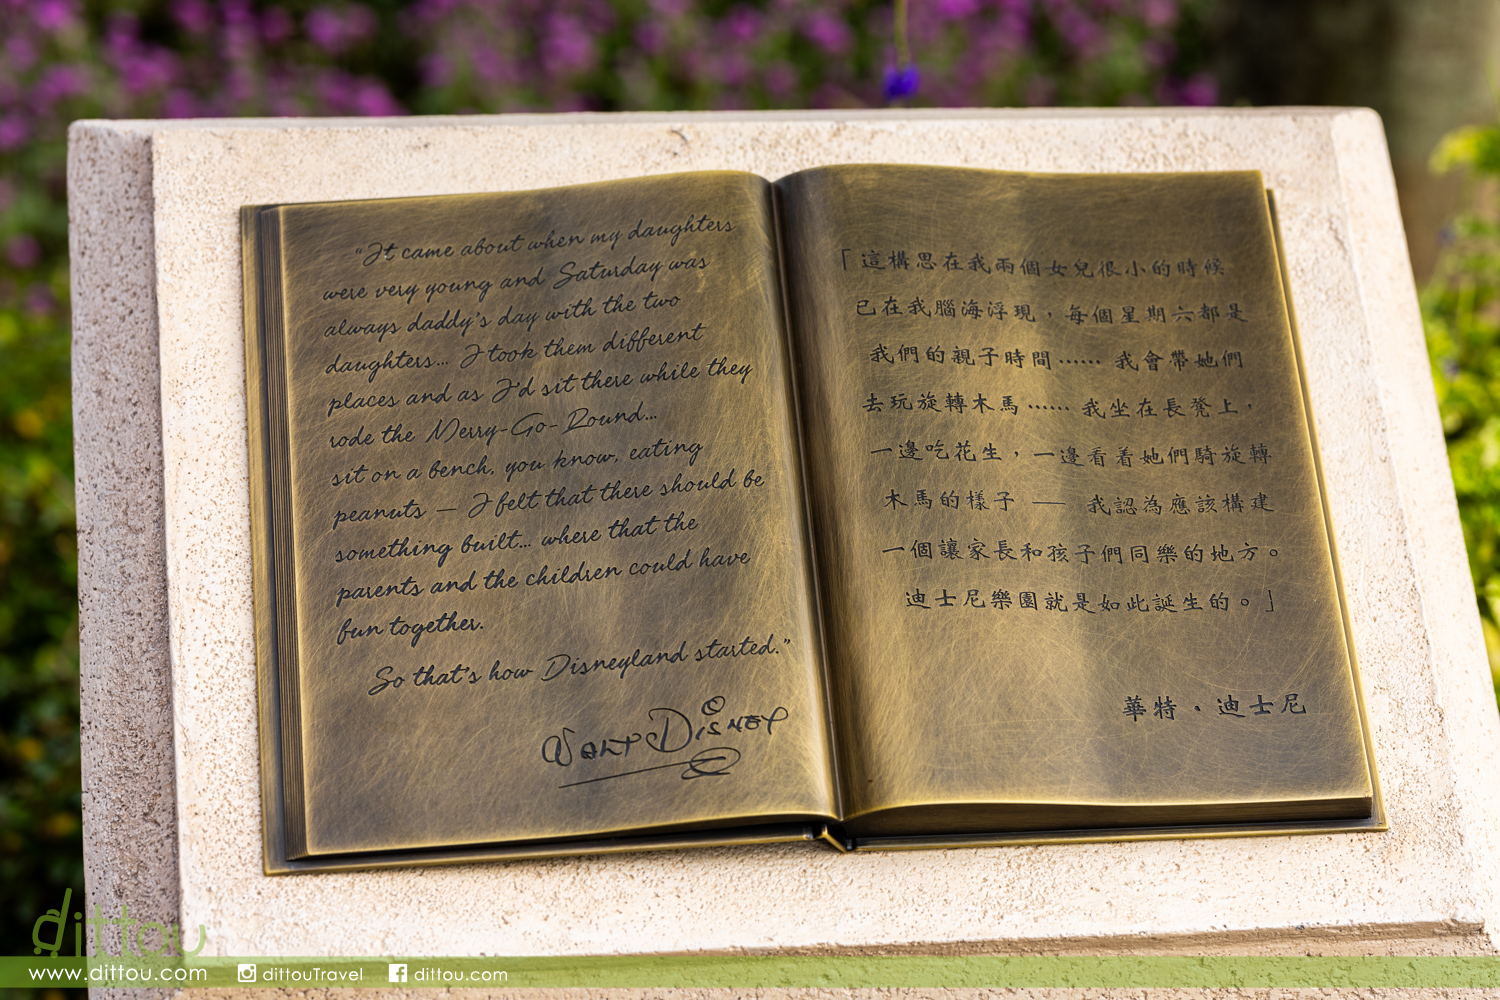 “It came about when my daughters
were very young and Saturday was
always daddy’s day with the two
daughters... I took them different
places and as I’d sit there while they
rode the Merry-Go-Round...
sit on a bench, you know, eating
peanuts — I felt that there should be
something built... where that the
parents and the children could have
fun together.
So that’s how Disneyland started.”
Walt Disney
「這構思在我兩個女兒很小的時候
已在我腦海浮現，每個星期六都是
我們的親子時間…… 我會帶她們
去玩旋轉木馬…… 我坐在長凳上，
一邊吃花生，一邊看着她們騎旋轉
木馬的樣子 — 我認為應該構建
一個讓家長和孩子們同樂的地方。
迪士尼樂園就是如此誕生的。」
華特・迪士尼
dittou
www.dittou.com dittouTravel dittou.com